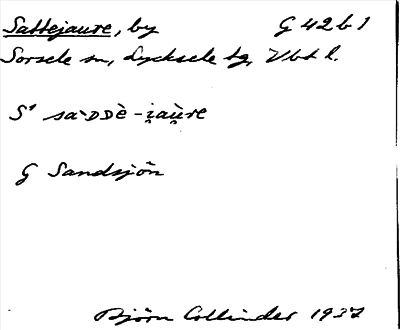 Sattejaure, by G 42 b 1
Sorsele sn, Lycksele tg, Vbt l.
S¹ sa·ᴅᴅè-i̯au̯re
G Sandsjön
Björn Collinder 1937